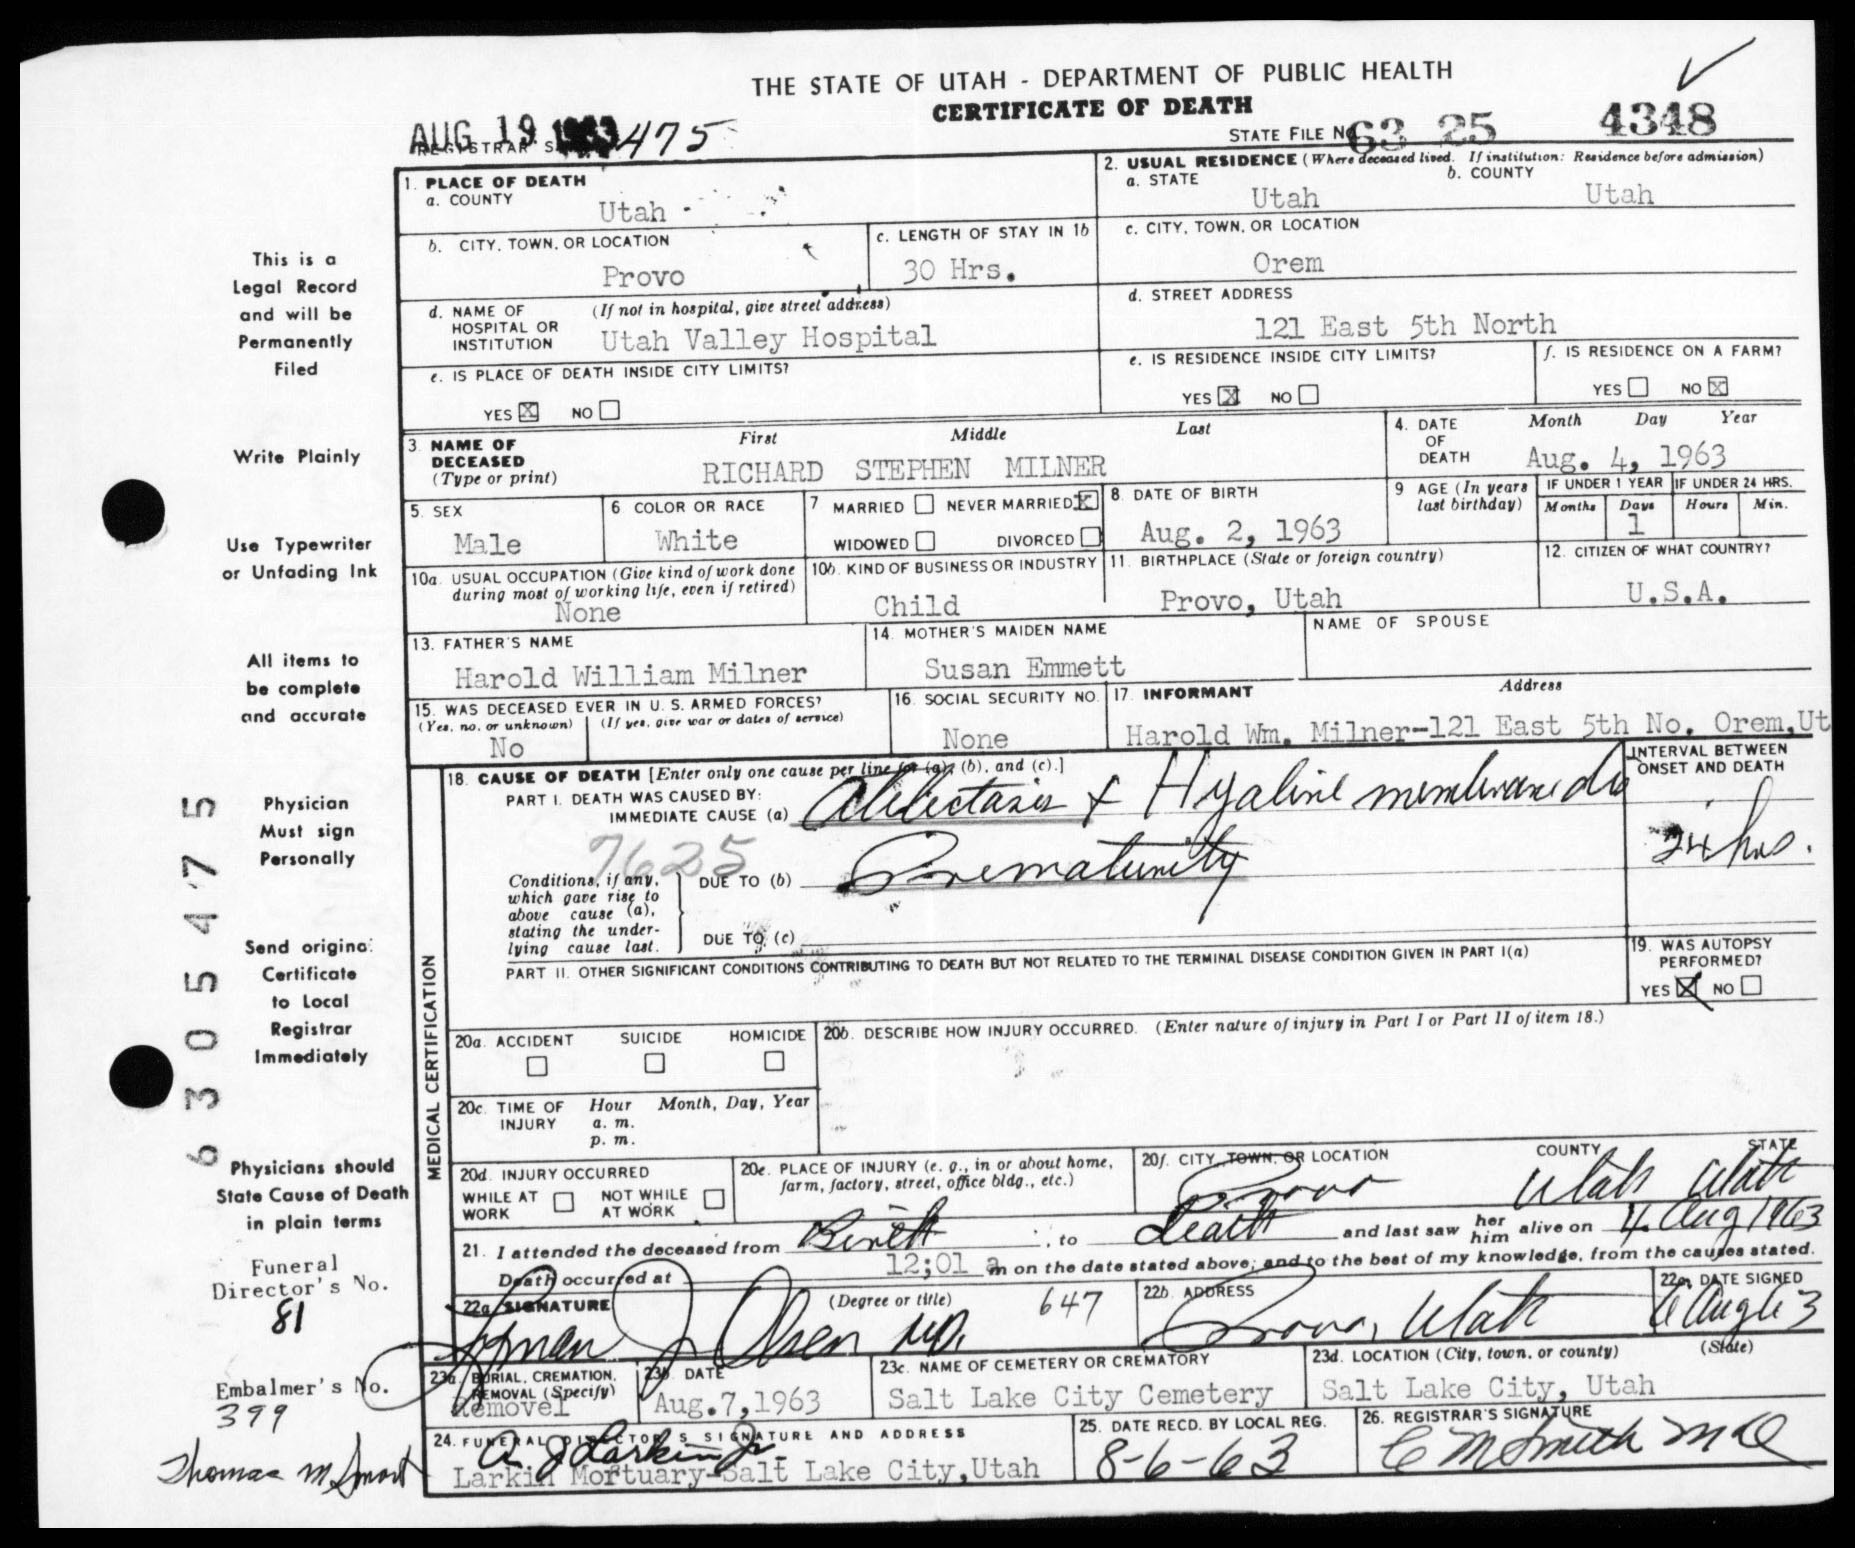 THE STATE OF UTAH - DEPARTMENT OF PUBLIC HEALTH
CERTIFICATE OF DEATH
AUG 19 1963 475
STATE FILE No 63 25 4348
1. PLACE OF DEATH
a. COUNTY
Utah
2. USUAL RESIDENCE (Where deceased lived. If institution: Residence before admission)
a. STATE b. COUNTY
Utah Utah
b. CITY, TOWN, OR LOCATION
Provo
c. LENGTH OF STAY IN 1b
30 Hrs.
c. CITY, TOWN, OR LOCATION
Orem
d. NAME OF HOSPITAL OR INSTITUTION (If not in hospital, give street address)
Utah Valley Hospital
d. STREET ADDRESS
121 East 5th North
e. IS PLACE OF DEATH INSIDE CITY LIMITS?
YES X NO
e. IS RESIDENCE INSIDE CITY LIMITS?
YES X NO
f. IS RESIDENCE ON A FARM?
YES NO X
3. NAME OF DECEASED (Type or print)
First Middle Last
RICHARD STEPHEN MILNER
4. DATE OF DEATH Month Day Year
Aug. 4, 1963
5. SEX
Male
6 COLOR OR RACE
White
7 MARRIED NEVER MARRIED X
WIDOWED DIVORCED
8. DATE OF BIRTH
Aug. 2, 1963
9 AGE (In years last birthday)
IF UNDER 1 YEAR IF UNDER 24 HRS.
Months Days Hours Min.
1
10a. USUAL OCCUPATION (Give kind of work done during most of working life, even if retired)
None
10b. KIND OF BUSINESS OR INDUSTRY
Child
11. BIRTHPLACE (State or foreign country)
Provo, Utah
12. CITIZEN OF WHAT COUNTRY?
U.S.A.
13. FATHER'S NAME
Harold William Milner
14. MOTHER'S MAIDEN NAME
Susan Emmett
NAME OF SPOUSE
15. WAS DECEASED EVER IN U. S. ARMED FORCES?
(Yes, no, or unknown) (If yes, give war or dates of service)
No
16. SOCIAL SECURITY NO.
None
17. INFORMANT Address
Harold Wm. Milner-121 East 5th No. Orem,Ut
MEDICAL CERTIFICATION
18. CAUSE OF DEATH [Enter only one cause per line for (a), (b), and (c).]
PART I. DEATH WAS CAUSED BY:
IMMEDIATE CAUSE (a) Atelectasis & Hyaline membrane dis
INTERVAL BETWEEN ONSET AND DEATH
24 hrs.
7625
Conditions, if any, which gave rise to above cause (a), stating the underlying cause last.
DUE TO (b) Prematurity
DUE TO (c)
PART II. OTHER SIGNIFICANT CONDITIONS CONTRIBUTING TO DEATH BUT NOT RELATED TO THE TERMINAL DISEASE CONDITION GIVEN IN PART I(a)
19. WAS AUTOPSY PERFORMED?
YES X NO
20a. ACCIDENT SUICIDE HOMICIDE
20b. DESCRIBE HOW INJURY OCCURRED. (Enter nature of injury in Part I or Part II of item 18.)
20c. TIME OF INJURY Hour Month, Day, Year
a. m.
p. m.
20d. INJURY OCCURRED
WHILE AT WORK NOT WHILE AT WORK
20e. PLACE OF INJURY (e. g., in or about home, farm, factory, street, office bldg., etc.)
20f. CITY, TOWN, OR LOCATION COUNTY STATE
Provo Utah Utah
21. I attended the deceased from Birth, to Death and last saw her him alive on 4 Aug 1963
Death occurred at 12;01 a m on the date stated above; and to the best of my knowledge, from the causes stated.
22a. SIGNATURE (Degree or title) 647
Lyman J Olsen MD.
22b. ADDRESS
Provo, Utah
22c. DATE SIGNED
6 Aug 63
23a. BURIAL, CREMATION, REMOVAL (Specify)
Removel
23b. DATE
Aug.7,1963
23c. NAME OF CEMETERY OR CREMATORY
Salt Lake City Cemetery
23d. LOCATION (City, town, or county) (State)
Salt Lake City, Utah
24. FUNERAL DIRECTOR'S SIGNATURE AND ADDRESS
A J Larkin Jr
Larkin Mortuary-Salt Lake City,Utah
25. DATE RECD. BY LOCAL REG.
8-6-63
26. REGISTRAR'S SIGNATURE
C M Smith MD
This is a
Legal Record
and will be
Permanently
Filed
Write Plainly
Use Typewriter
or Unfading Ink
All items to
be complete
and accurate
Physician
Must sign
Personally
Send original
Certificate
to Local
Registrar
Immediately
Physicians should
State Cause of Death
in plain terms
Funeral
Director's No.
81
Embalmer's No.
399
Thomas M Smart
6305475